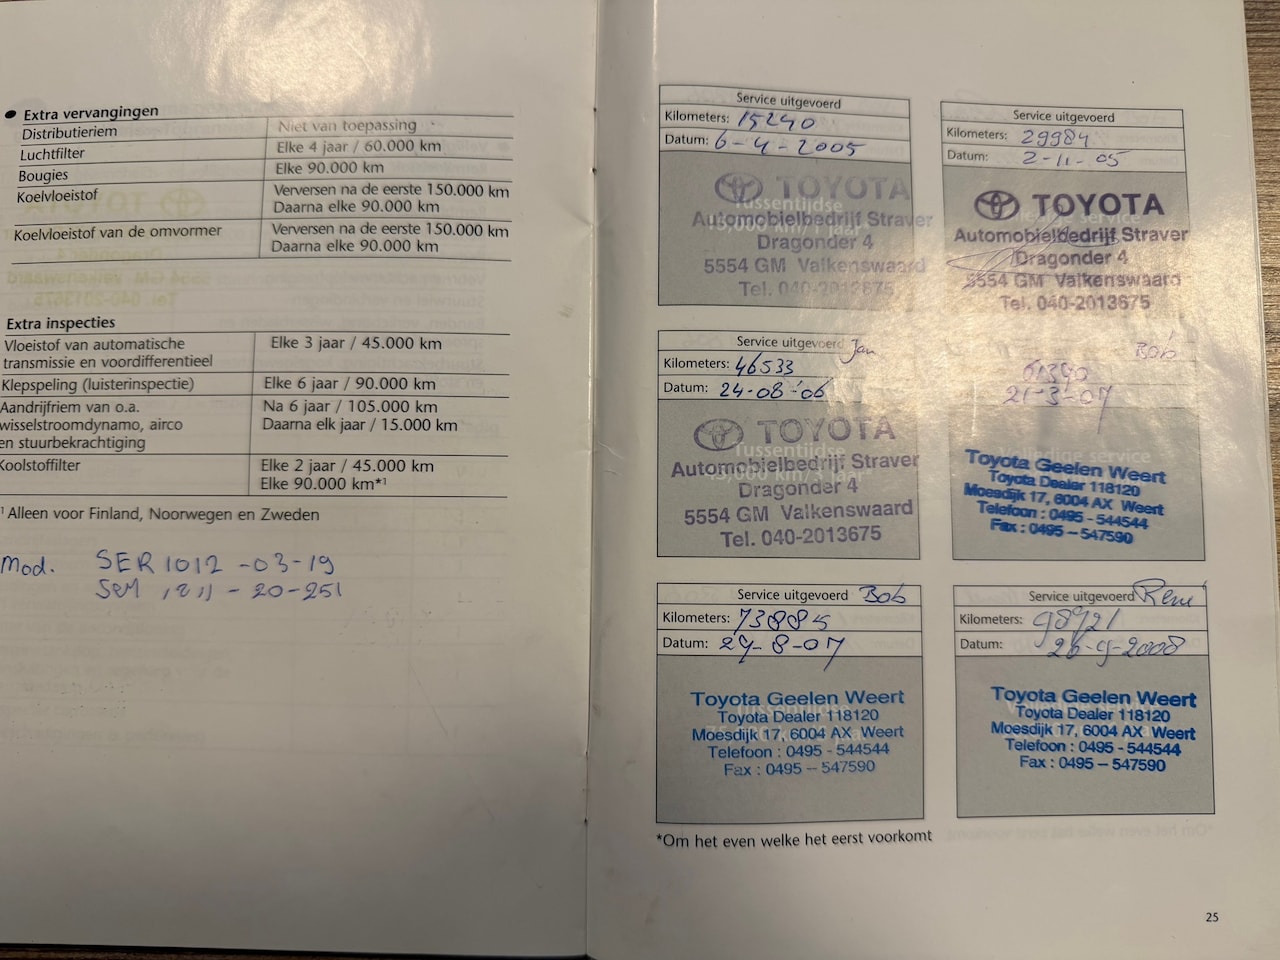 Extra vervangingen
Distributieriem Niet van toepassing
Luchtfilter Elke 4 jaar / 60.000 km
Bougies Elke 90.000 km
Koelvloeistof Verversen na de eerste 150.000 km
Daarna elke 90.000 km
Koelvloeistof van de omvormer Verversen na de eerste 150.000 km
Daarna elke 90.000 km
Extra inspecties
Vloeistof van automatische Elke 3 jaar / 45.000 km
transmissie en voordifferentieel
Klepspeling (luisterinspectie) Elke 6 jaar / 90.000 km
Aandrijfriem van o.a. Na 6 jaar / 105.000 km
wisselstroomdynamo, airco Daarna elk jaar / 15.000 km
en stuurbekrachtiging
Koolstoffilter Elke 2 jaar / 45.000 km
Elke 90.000 km*1
1 Alleen voor Finland, Noorwegen en Zweden
Mod. SER 1012 -03-19
Service uitgevoerd
Kilometers: 15240
Datum: 6-4-2005
Tussentijdse
15,000 km/1 jaar*
TOYOTA
Automobielbedrijf Straver
Dragonder 4
5554 GM Valkenswaard
Tel. 040-2013675
Service uitgevoerd
Kilometers: 29984
Datum: 2-11-05
TOYOTA
Automobielbedrijf Straver
Dragonder 4
5554 GM Valkenswaard
Tel. 040-2013675
Service uitgevoerd Jan
Kilometers: 46533
Datum: 24-08-'06
Tussentijdse
TOYOTA
Automobielbedrijf Straver
Dragonder 4
5554 GM Valkenswaard
Tel. 040-2013675
Bob
61390
21-3-07
Toyota Geelen Weert
Toyota Dealer 118120
Moesdijk 17, 6004 AX Weert
Telefoon : 0495 - 544544
Fax : 0495 – 547590
Service uitgevoerd Bob
Kilometers: 73885
Datum: 29-8-07
Toyota Geelen Weert
Toyota Dealer 118120
Moesdijk 17, 6004 AX Weert
Telefoon : 0495 - 544544
Fax : 0495 – 547590
Service uitgevoerd René
Kilometers: 98921
Datum: 26-9-2008
Toyota Geelen Weert
Toyota Dealer 118120
Moesdijk 17, 6004 AX Weert
Telefoon : 0495 - 544544
Fax : 0495 – 547590
*Om het even welke het eerst voorkomt
25